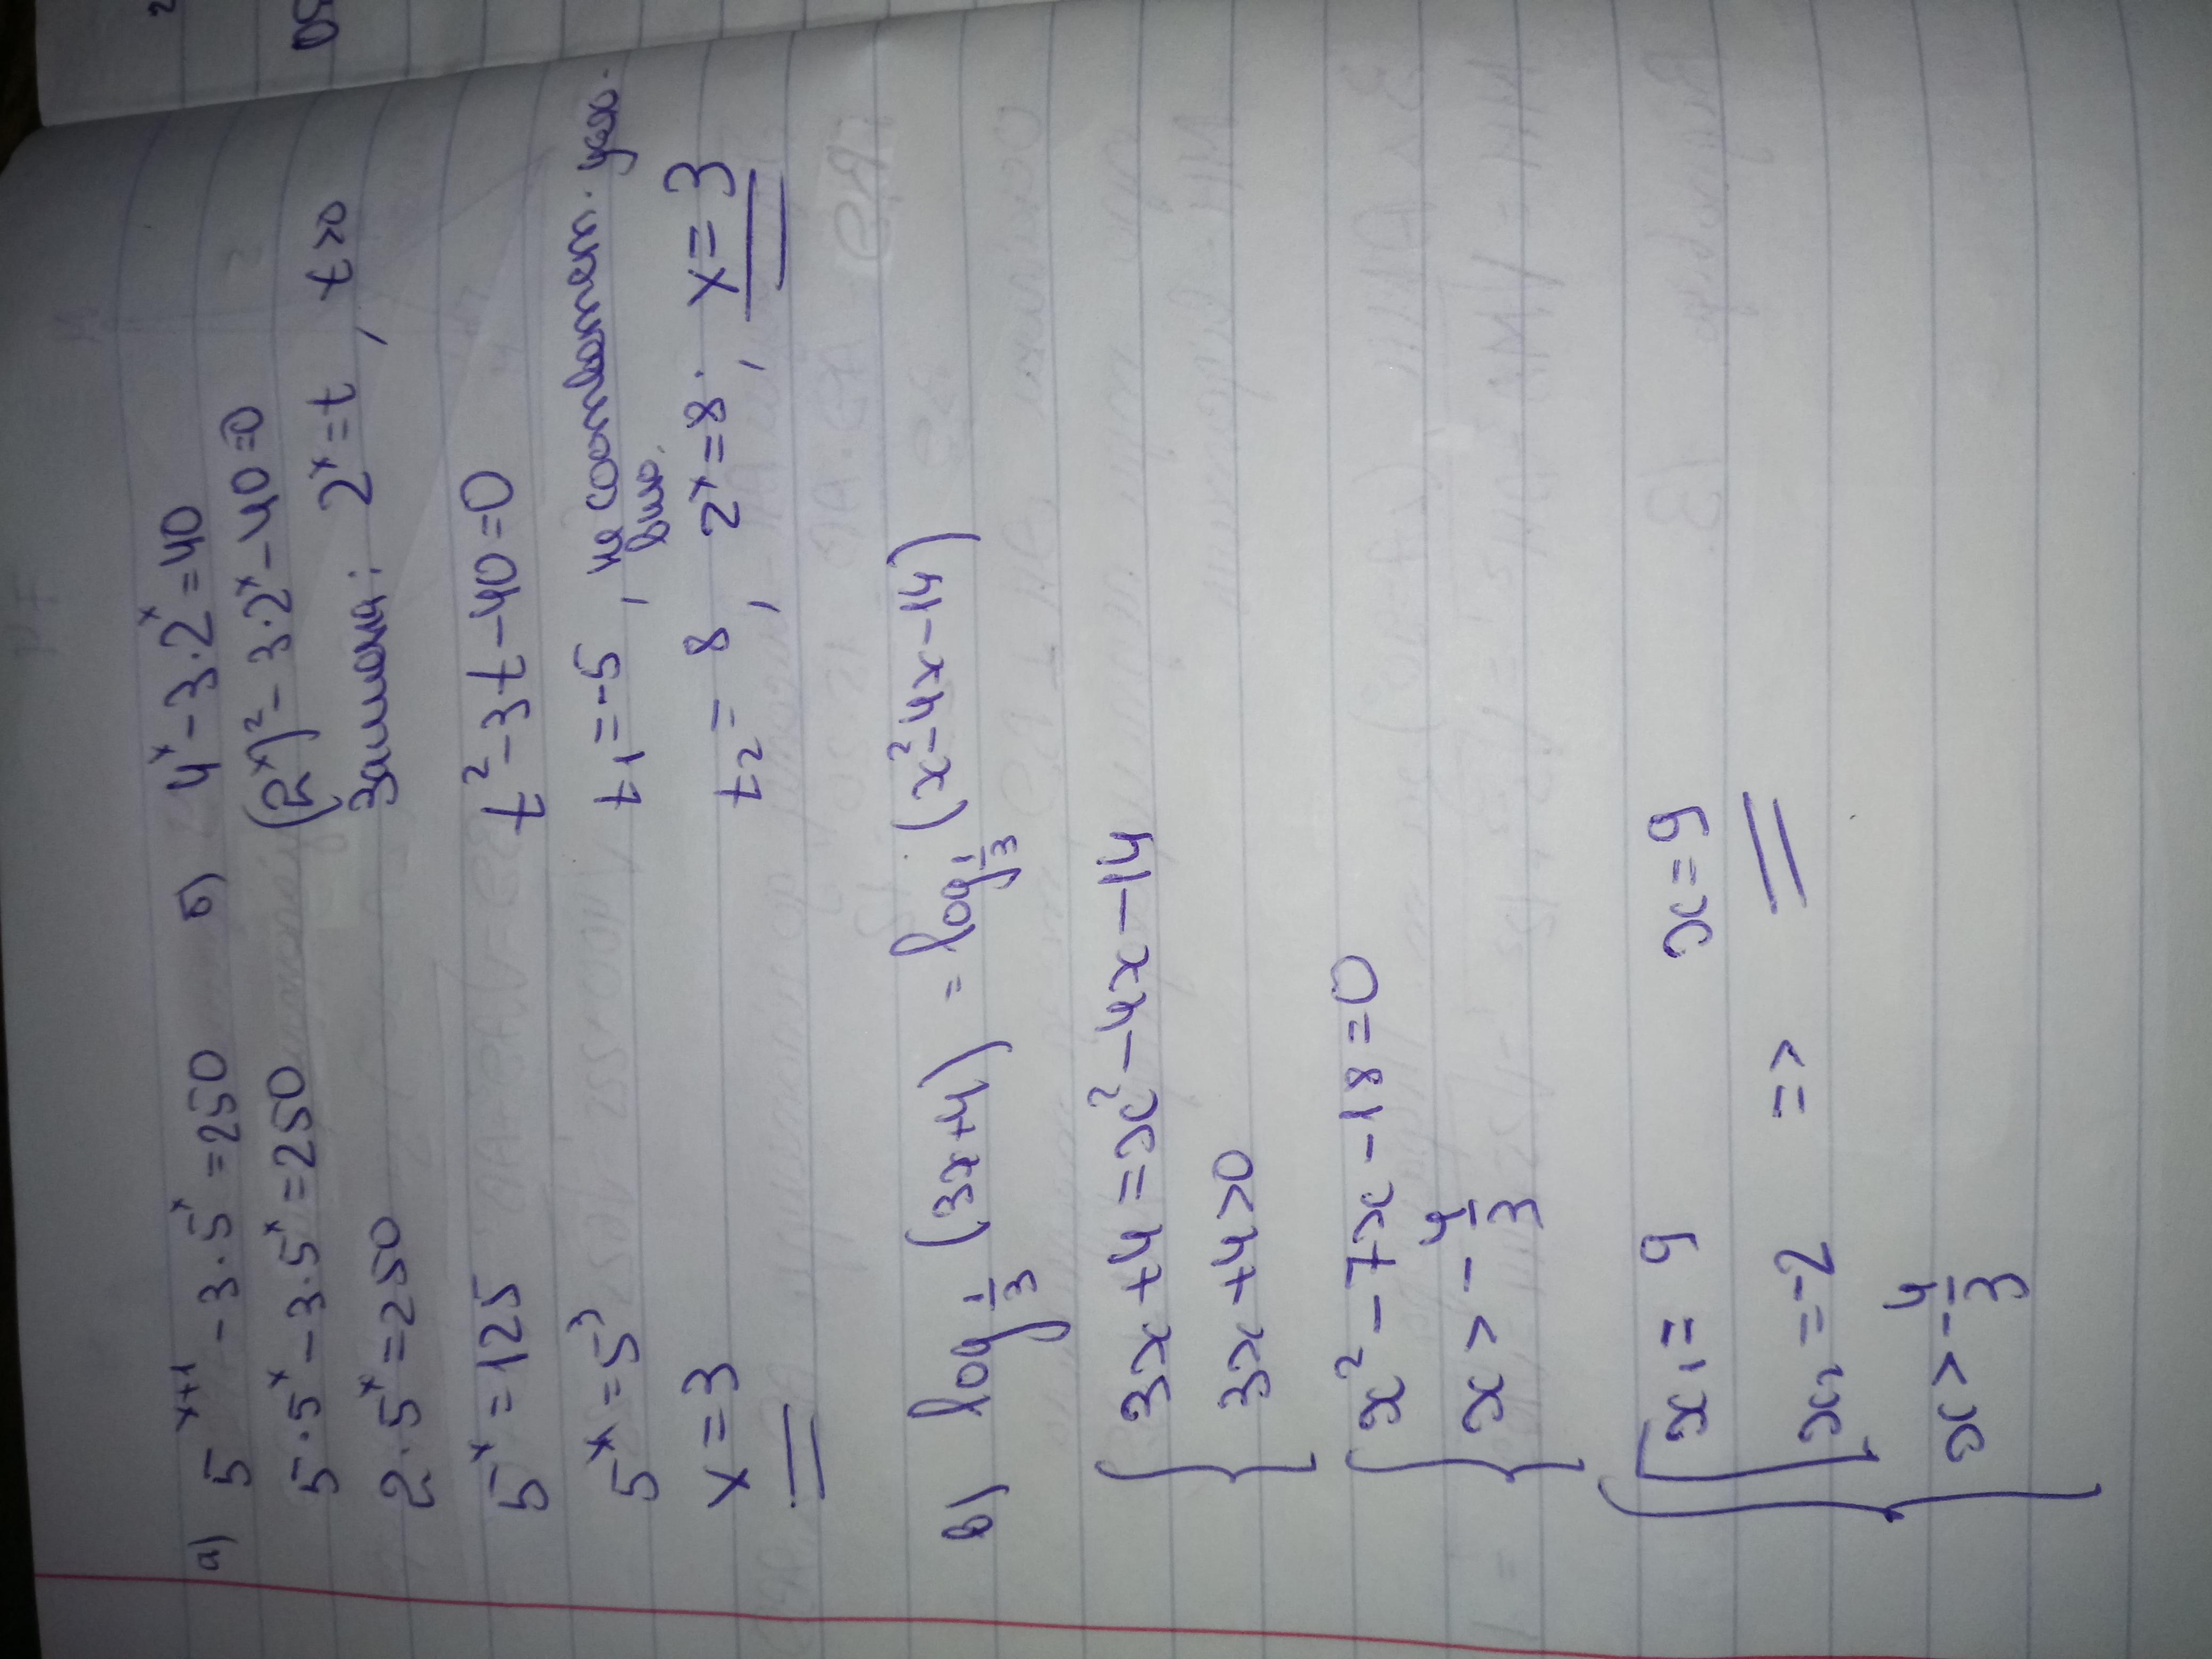 а) 5^(x+1) - 3·5^x = 250
5·5^x - 3·5^x = 250
2·5^x = 250
5^x = 125
5^x = 5^3
x = 3
б) 4^x - 3·2^x = 40
(2^x)^2 - 3·2^x - 40 = 0
Замена: 2^x = t, t>0
t^2 - 3t - 40 = 0
t1 = -5, не соответств. усло-
вию.
t2 = 8, 2^x = 8, x = 3
в) log 1/3 (3x+4) = log 1/3 (x^2-4x-14)
{ 3x+4 = x^2-4x-14
3x+4>0
{ x^2-7x-18=0
x > -4/3
{ [ x1 = 9
x2 = -2 => x = 9
x > -4/3